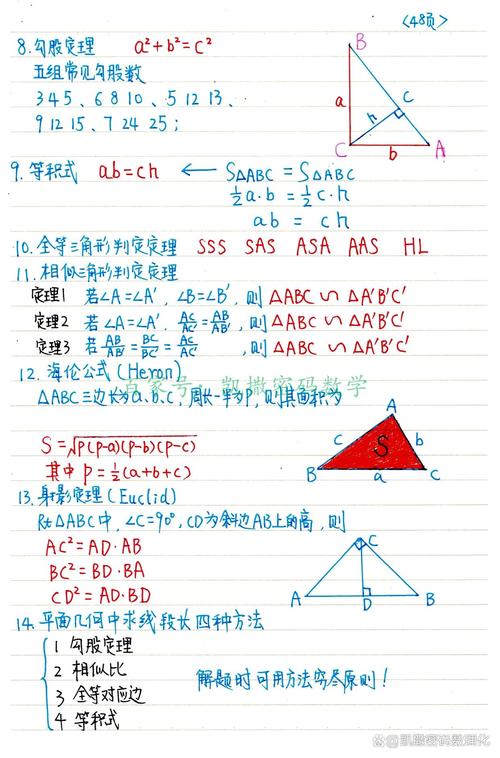 <48页>
8. 勾股定理 a²+b²=c²
五组常见勾股数
3 4 5 、 6 8 10 、 5 12 13 、
9 12 15 、 7 24 25 ;
B
a
h
C
C
b
A
9. 等积式 ab=ch ← S△ABC = S△ABC
½a·b = ½c·h
ab = ch
10. 全等三角形判定定理 SSS SAS ASA AAS HL
11. 相似三角形判定定理
定理1 若∠A=∠A′, ∠B=∠B′, 则 △ABC ∽ △A′B′C′
定理2 若∠A=∠A′, AC/A′C′=AB/A′B′, 则 △ABC ∽ △A′B′C′
定理3 若 AB/A′B′=BC/B′C′=AC/A′C′, 则 △ABC ∽ △A′B′C′
12. 海伦公式(Heron)
百家号: 凯撒密码数学
△ABC三边长为a.b.c, 周长一半为P, 则其面积为
S=√P(P-a)(P-b)(P-c)
其中 P=½(a+b+c)
A
c
S
b
B
a
C
13. 射影定理(Euclid)
Rt△ABC中, ∠C=90°, CD为斜边AB上的高, 则
AC²=AD·AB
BC²=BD·BA
CD²=AD·BD
C
A
D
B
14. 平面几何中求线段长四种方法
1 勾股定理
2 相似比
3 全等对应边
4 等积式
解题时可用方法穷尽原则!
@凯撒密码数理化